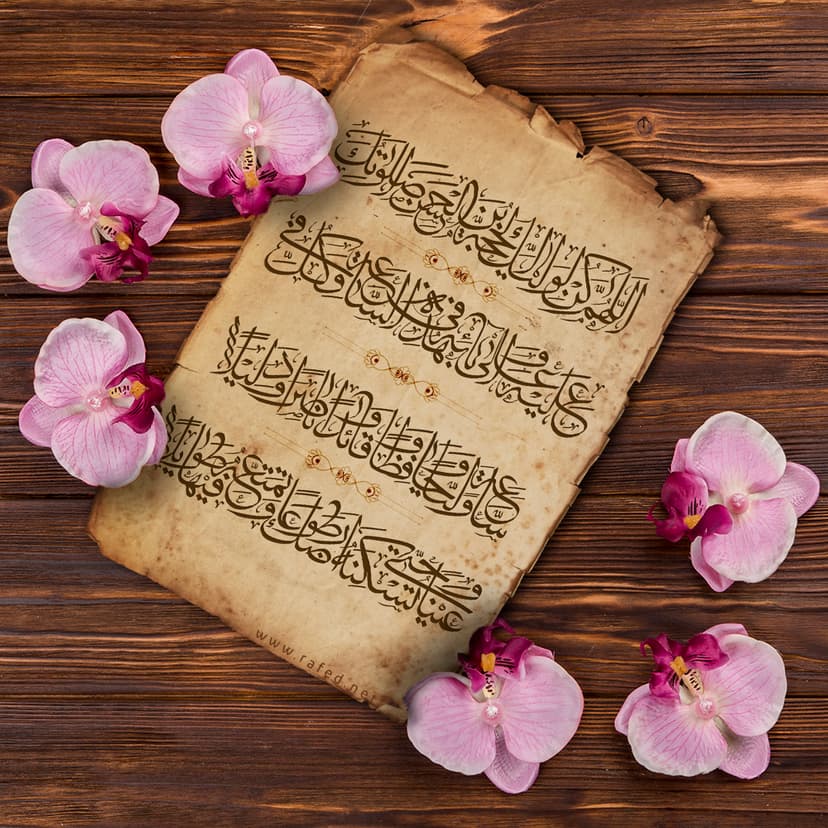 اللهم كن لوليك الحجة بن الحسن صلواتك
عليه وعلى آبائه في هذه الساعة وفي كل
ساعة ولياً وحافظاً وقائداً وناصراً ودليلاً
وعيناً حتى تسكنه أرضك طوعاً وتمتعه فيها طويلاً
www.rafed.net